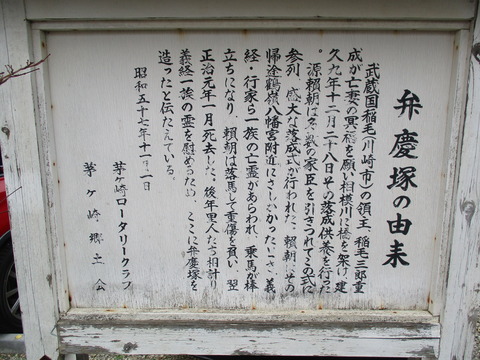 弁慶塚の由来
武蔵国稲毛(川崎市)の領主、稲毛三郎重
成が亡妻の冥福を願い相模川に橋を架け、建
久九年十二月二十八日その落成供養を行った
。源頼朝は多数の家臣を引きつれてこの式に
参列、盛大な落成式が行われた、頼朝はその
帰途鶴嶺八幡宮附近にさしかかったとき、義
経・行家ら一族の亡霊があらわれ、乗馬が棒
立ちになり、頼朝は落馬して重傷を負い、翌
正治元年一月死去した。後年里人たち相計り
義経一族の霊を慰めるため、ここに弁慶塚を
造ったと伝えている。
昭和五十七年十一月一日
茅ヶ崎ロータリークラブ
茅ヶ崎郷土会